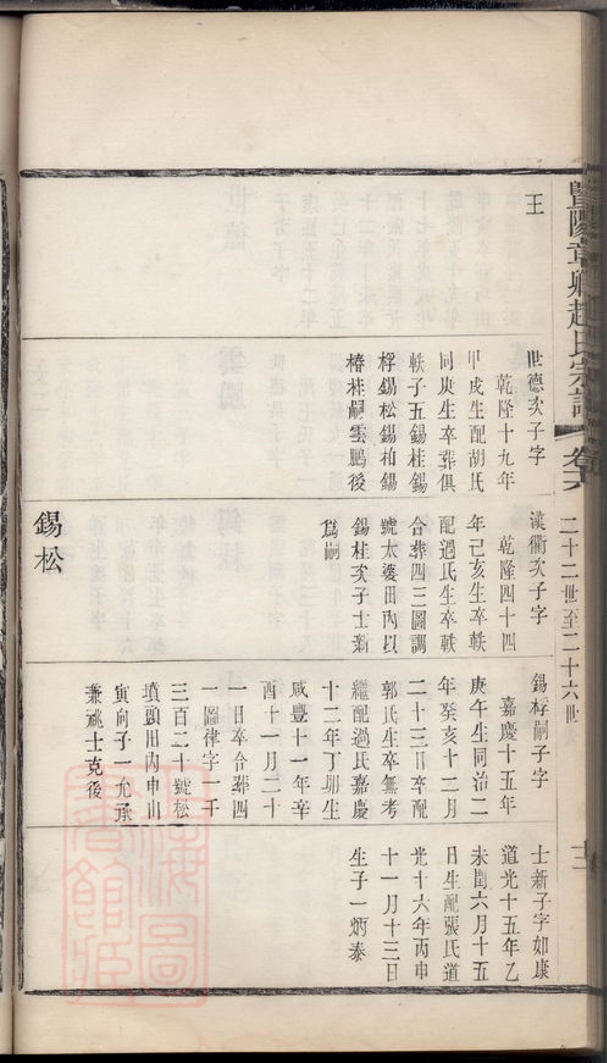 暨陽章卿趙氏宗譜
卷六
二十二世至二十六世
王
世德次子字
乾隆十九年
甲戌生配胡氏
同庚生卒葬俱
軼子五錫桂錫
桴錫松錫柏錫
椿桂嗣雲鵬後
漢衢次子字
乾隆四十四
年己亥生卒軼
配過氏生卒軼
合葬四三圖調
號太婆田內以
錫桂次子士新
爲嗣
錫松
錫桴嗣子字
嘉慶十五年
庚午生同治二
年癸亥十二月
二十三日卒配
郭氏生卒無考
繼配過氏嘉慶
十二年丁卯生
咸豐十一年辛
酉十一月二十
一日卒合葬四
一圖律字一千
三百二十號松
墳頭田內申山
寅向子一允承
兼祧士克後
士新子字如康
道光十五年乙
未閏六月十五
日生配張氏道
光十六年丙申
十一月十三日
生子一炳泰